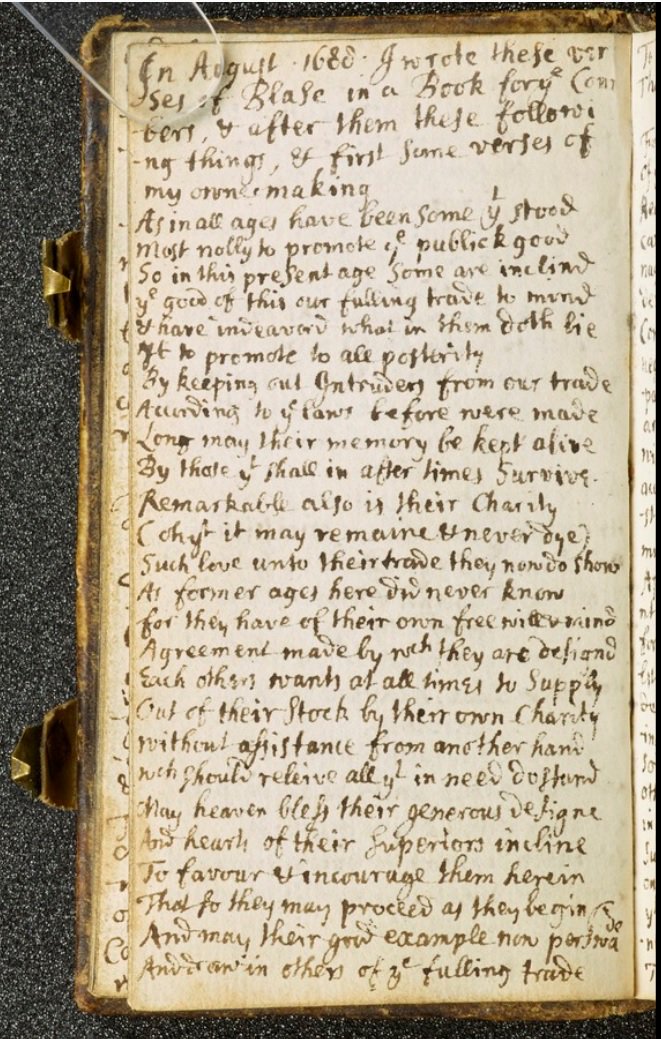 In August 1688 I wrote these ver
ses of Blase in a Book for yᵉ Com
bers, & after them these followi
ng things, & first some verses of
my owne making
As in all ages have been some yᵗ stood
Most nobly to promote yᵉ publick good
So in this present age some are inclind
yᵉ good of this our fulling trade to mind
& have indeavord what in them doth lie
It to promote to all posterity
By keeping out Intruders from our trade
According to yᵉ laws before were made
Long may their memory be kept alive
By those yᵗ shall in after times Survive.
Remarkable also is their Charity
(oh yᵗ it may remaine & never dye)
Such love unto their trade they now do show
As former ages here did never know
for they have of their own free will & mind
Agreement made by wch they are designd
Each others wants at all times to Supply
Out of their Stock by their own Charity
without assistance from another hand
wch should releive all yᵗ in need do stand
May heaven bless their generous designe
And hearts of their superiors incline
To favour & incourage them herein
That so they may proceed as they begin
And may their good example now perswade
And draw in others of yᵉ fulling trade